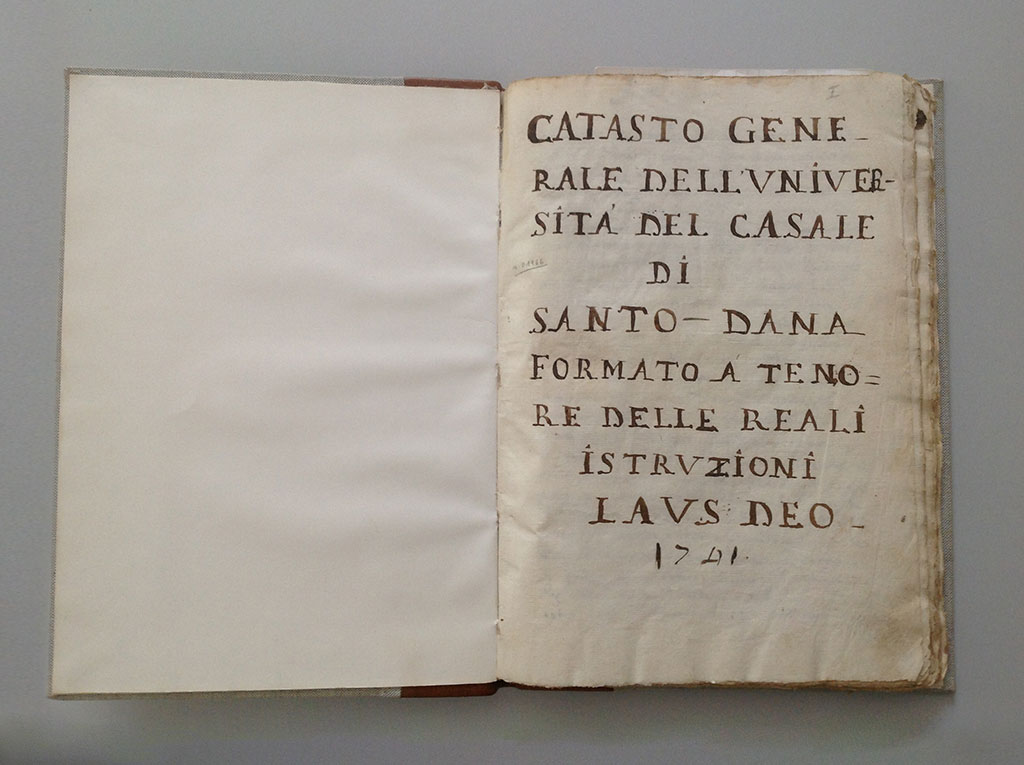 I
CATASTO GENE-
RALE DELL'VNIVER-
SITÁ DEL CASALE
DI
SANTO-DANA
FORMATO A TENO=
RE DELLE REALI
ISTRVZIONI
LAVS DEO-
1741.